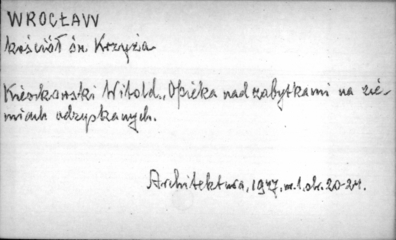 WROCŁAW
kościół św. Krzyża
Kieszkowski Witold., Opieka nad zabytkami na zie-
miach odzyskanych.
Architektura, 1947, nr. 1. str. 20-24.